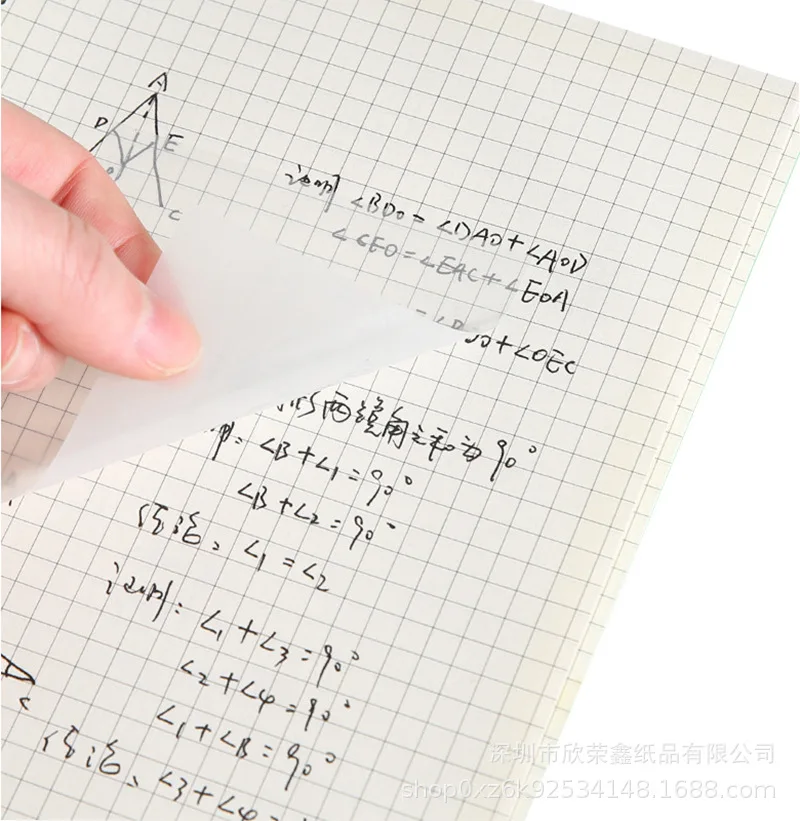 A
D
E
C
证明 ∠BDO=∠DAO+∠AOD
∠CEO=∠EAC+∠EOA
+∠OEC
两锐角之和为90°
∠B+∠1=90°
∠B+∠2=90°
结论: ∠1=∠2
证明: ∠1+∠3=90°
∠2+∠4=90°
∠1+∠B=90°
结论: ∠3+∠4=
A
C
深圳市欣荣鑫纸品有限公司
shop0xz6k92534148.1688.com